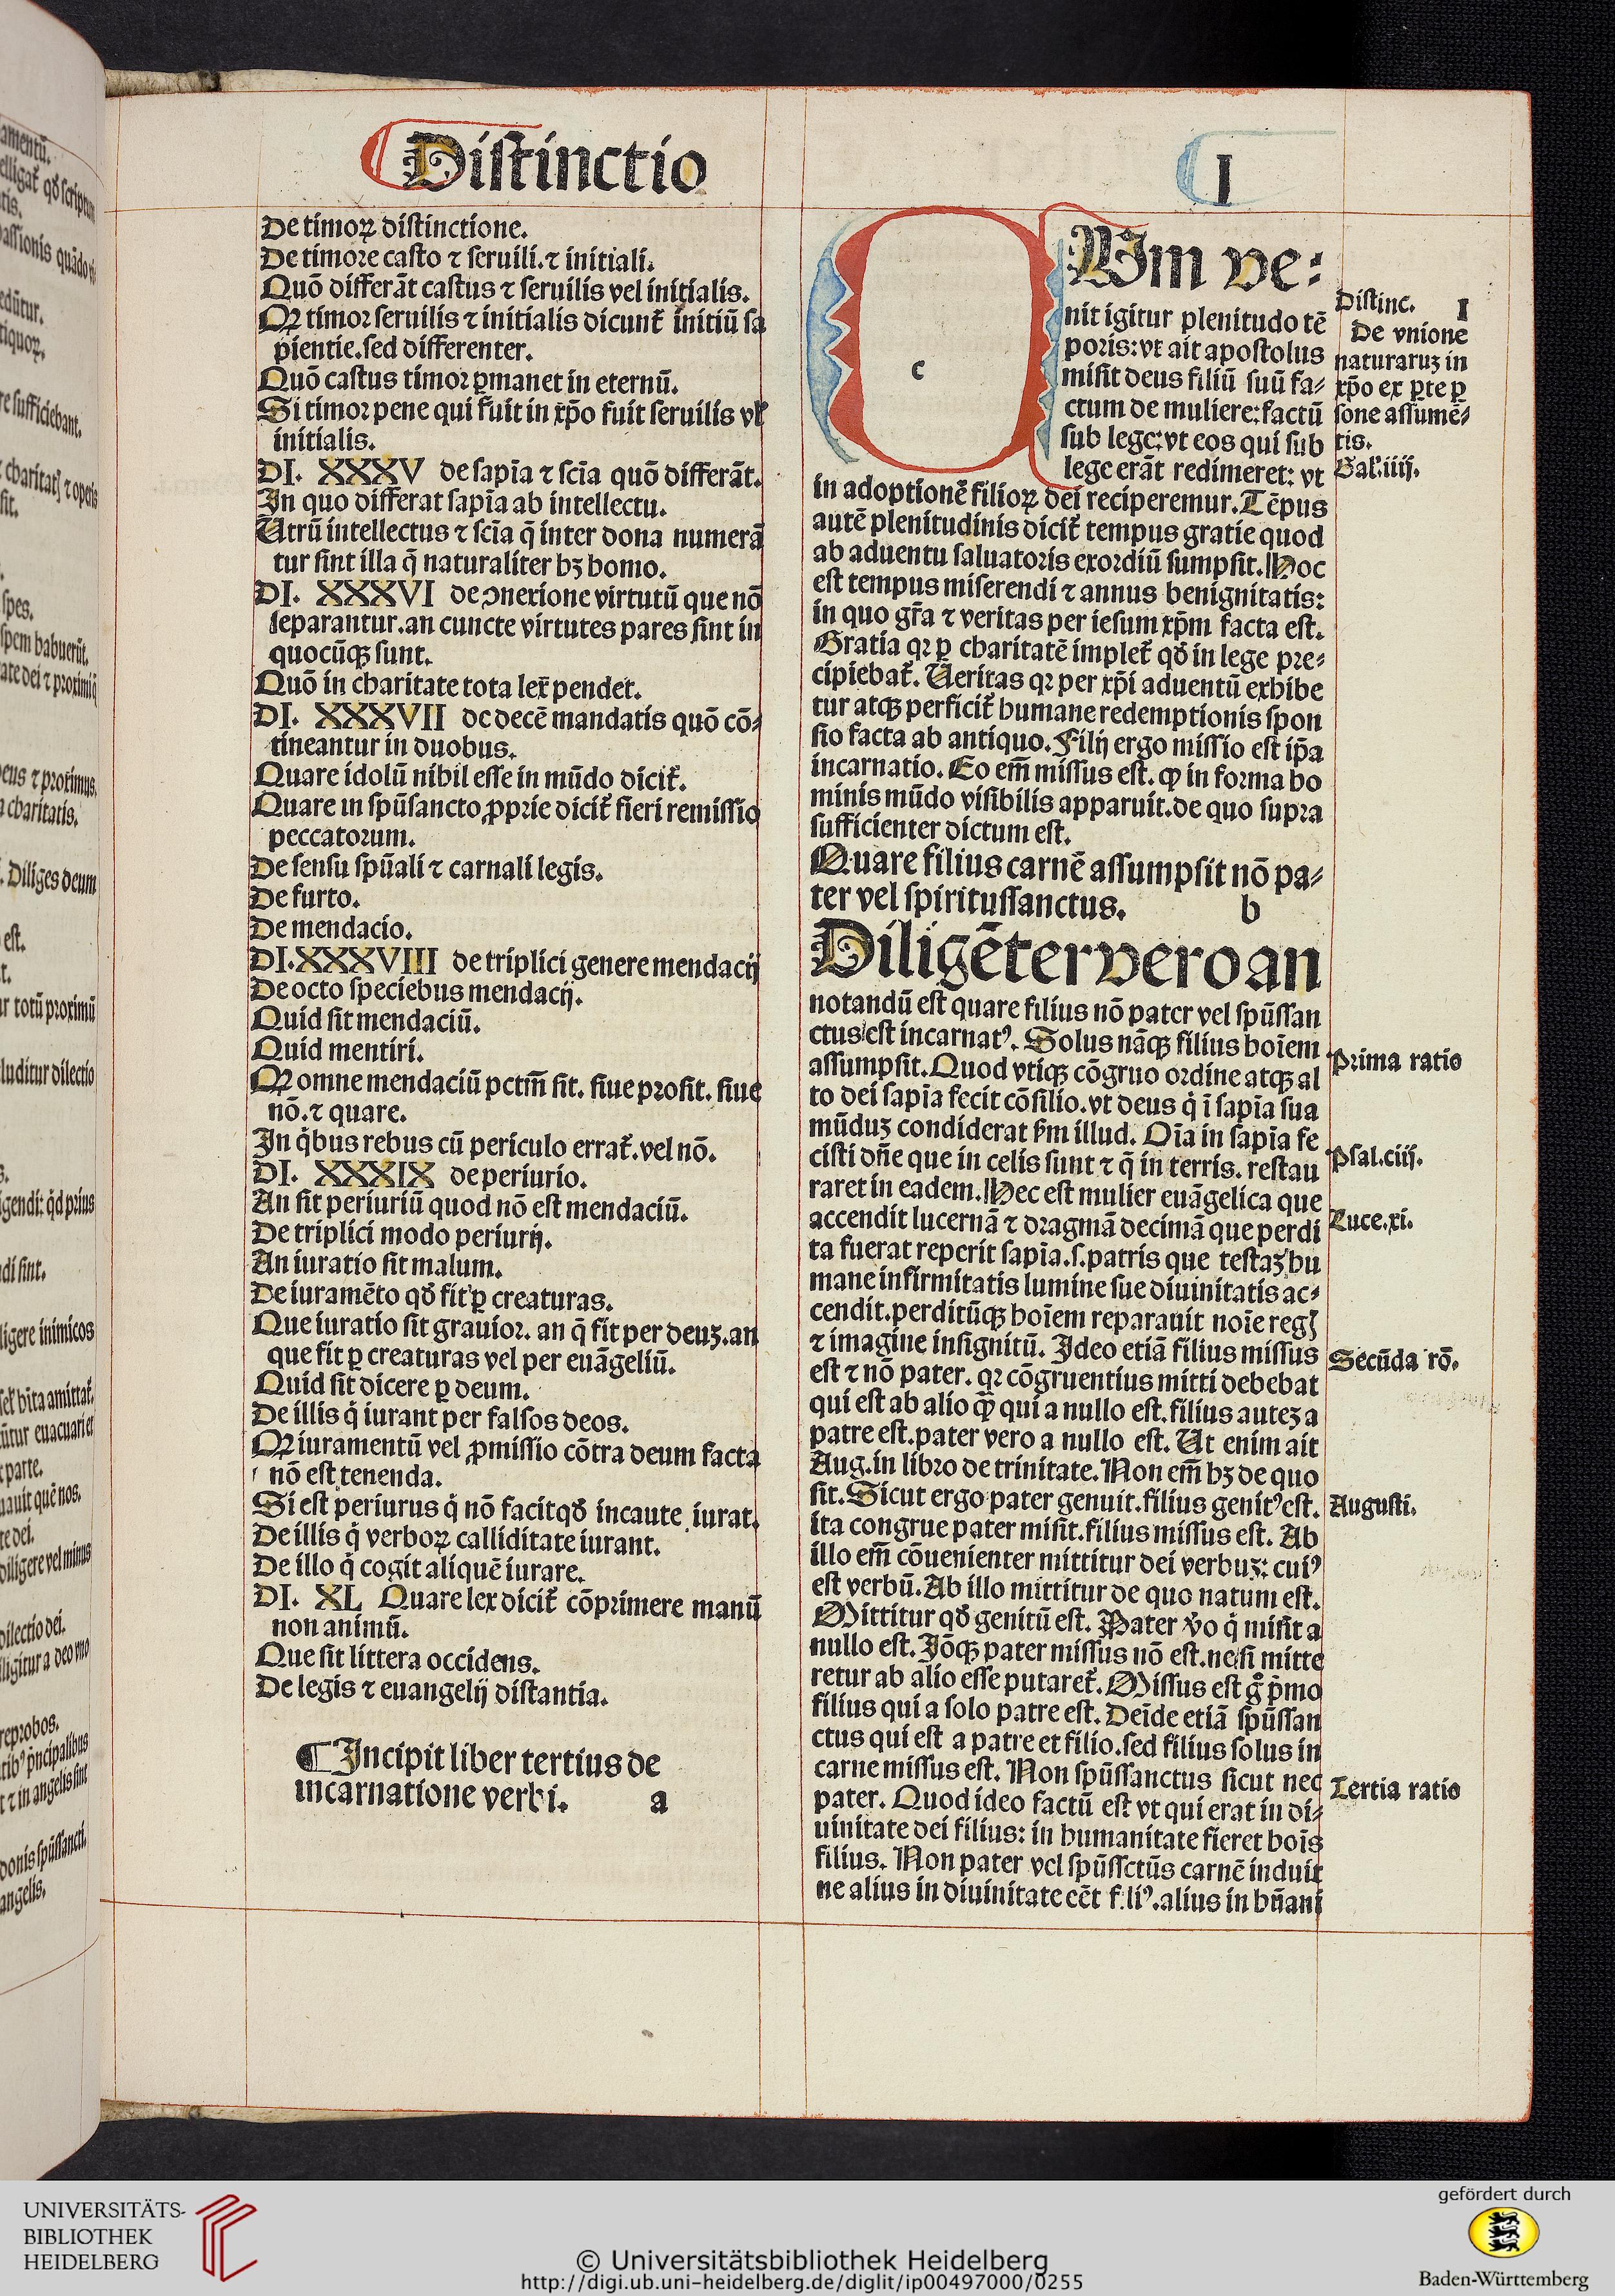 Distinctio
I
De timoꝝ distinctione.
De timore casto ⁊ seruili.⁊ initiali.
Quō differāt castus ⁊ seruilis vel initialis.
Qꝛ timor seruilis ⁊ initialis dicunt̄ initiū sa
pientie.sed differenter.
Quō castus timor ꝑmanet in eternū.
Si timor pene qui fuit in xp̄o fuit seruilis vl̄
initialis.
DI. XXXV de sapīa ⁊ scīa quō differāt.
In quo differat sapīa ab intellectu.
Utrū intellectus ⁊ scīa q̄ inter dona numerā
tur sint illa q̄ naturaliter hꝫ homo.
DI. XXXVI de ꝯnexione virtutū que nō
separantur.an cuncte virtutes pares sint in
quocūqꝫ sunt.
Quō in charitate tota lex pendet.
DI. XXXVII de decē mandatis quō cō⸗
tineantur in duobus.
Quare idolū nihil esse in mūdo dicit̄.
Quare in spūsancto ꝓprie dicit̄ fieri remissio
peccatorum.
De sensu spūali ⁊ carnali legis.
De furto.
De mendacio.
DI.XXXVIII de triplici genere mendacij
De octo speciebus mendacij.
Quid sit mendaciū.
Quid mentiri.
Qꝛ omne mendaciū pctm̄ sit. siue prosit. siue
nō.⁊ quare.
In q̇bus rebus cū periculo errat̄.vel nō.
DI. XXXIX de periurio.
An sit periuriū quod nō est mendaciū.
De triplici modo periurij.
An iuratio sit malum.
De iuramēto qd̄ fit ꝑ creaturas.
Que iuratio sit grauior. an q̄ fit per deuꝫ.an
que fit ꝑ creaturas vel per euāgeliū.
Quid sit dicere ꝑ deum.
De illis q̇ iurant per falsos deos.
Qꝛ iuramentū vel ꝓmissio cōtra deum facta
nō est tenenda.
Si est periurus q̇ nō facit qd̄ incaute iurat.
De illis q̇ verboꝝ calliditate iurant.
De illo q̇ cogit aliquē iurare.
DI. XL Quare lex dicit̄ cōprimere manū
non animū.
Que sit littera occidens.
De legis ⁊ euangelij distantia.
¶ Incipit liber tertius de
incarnatione verbi. a
c
Vm ve⸗
nit igitur plenitudo tē
poris:vt ait apostolus
misit deus filiū suū fa⸗
ctum de muliere:factū
sub lege:vt eos qui sub
lege erāt redimeret: vt
in adoptionē filioꝝ dei reciperemur.Tēpus
autē plenitudinis dicit̄ tempus gratie quod
ab aduentu saluatoris exordiū sumpsit.Hoc
est tempus miserendi ⁊ annus benignitatis:
in quo gr̄a ⁊ veritas per iesum xp̄m facta est.
Gratia qꝛ ꝑ charitatē implet̄ qd̄ in lege pre⸗
cipiebat̄. Ueritas qꝛ per xp̄i aduentū exhibe
tur atqꝫ perficit̄ humane redemptionis spon
sio facta ab antiquo.Filij ergo missio est ip̄a
incarnatio. Eo em̄ missus est. ꝙ in forma ho
minis mūdo visibilis apparuit.de quo supra
sufficienter dictum est.
Quare filius carnē assumpsit nō pa⸗
ter vel spiritussanctus. b
Diligēter vero an
notandū est quare filius nō pater vel spūssan
ctus est incarnatꝰ. Solus nāqꝫ filius hoīem
assumpsit.Quod vtiqꝫ cōgruo ordine atqꝫ al
to dei sapīa fecit cōsilio.vt deus q̇ ī sapīa sua
mūduꝫ condiderat ẜm illud. Oīa in sapīa fe
cisti dn̄e que in celis sunt ⁊ q̄ in terris. restau
raret in eadem.Hec est mulier euāgelica que
accendit lucernā ⁊ dragmā decimā que perdi
ta fuerat reperit sapīa.s.patris que testaꝫ hu
mane infirmitatis lumine sue diuinitatis ac⸗
cendit.perditūqꝫ hoīem reparauit noīe regꝭ
⁊ imagine insignitū. Ideo etiā filius missus
est ⁊ nō pater. qꝛ cōgruentius mitti debebat
qui est ab alio qꝫ̄ qui a nullo est.filius auteꝫ a
patre est.pater vero a nullo est. Ut enim ait
Aug.in libro de trinitate.Non em̄ hꝫ de quo
sit.Sicut ergo pater genuit.filius genitꝰ est.
ita congrue pater misit.filius missus est. Ab
illo em̄ cōuenienter mittitur dei verbuꝫ: cuiꝰ
est verbū.Ab illo mittitur de quo natum est.
Mittitur qd̄ genitū est. Pater v̄o q̇ misit a
nullo est. Iōqꝫ pater missus nō est.ne si mitte
retur ab alio esse putaret̄. Missus est g̊ p̄mo
filius qui a solo patre est. Deīde etiā spūssan
ctus qui est a patre et filio.sed filius solus in
carne missus est. Non spūssanctus sicut nec
pater. Quod ideo factū est vt qui erat in di⸗
uinitate dei filius: in humanitate fieret hoīs
filius. Non pater vel spūssctūs carnē induit
ne alius in diuinitate eēt filiꝰ.alius in hūani
Distinc. I
De vnione
naturaruꝫ in
xp̄o ex ꝑte ꝑ
sone assumē⸗
tis.
Gal̄.iiij.
Prima ratio
Psal.ciij.
Luce.xi.
Secūda rō.
Augusti.
Tertia ratio
UNIVERSITÄTS-
BIBLIOTHEK
HEIDELBERG
© Universitätsbibliothek Heidelberg
http://digi.ub.uni-heidelberg.de/diglit/ip00497000/0255
gefördert durch
Baden-Württemberg